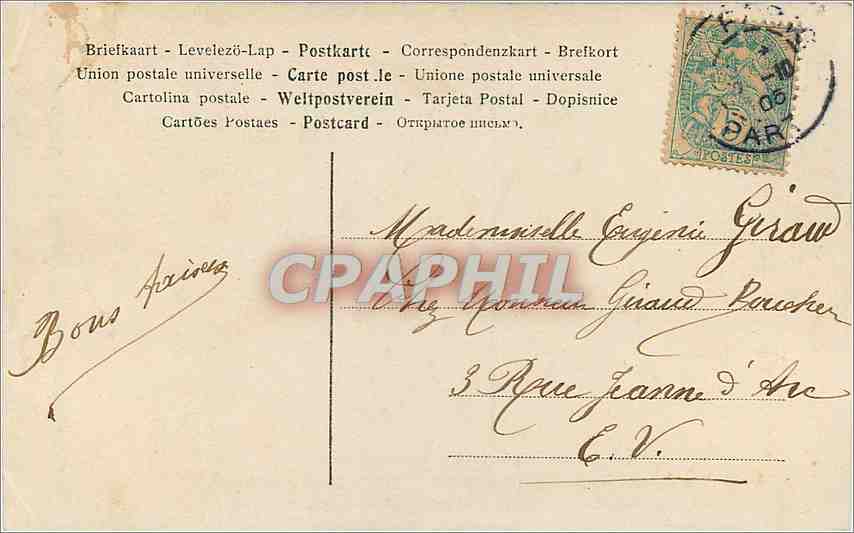 Briefkaart - Levelezö-Lap - Postkarte - Correspondenzkart - Brefkort
Union postale universelle - Carte post.le - Unione postale universale
Cartolina postale - Weltpostverein - Tarjeta Postal - Dopisnice
Cartões Postaes - Postcard - Открытое письмо.
10
05
PAR
POSTES
Mademoiselle Eugénie Giraud
Bons baisers
CPAPHIL
Chez Monsieur Giraud Boucher
3 Rue Jeanne d'Arc
E. V.